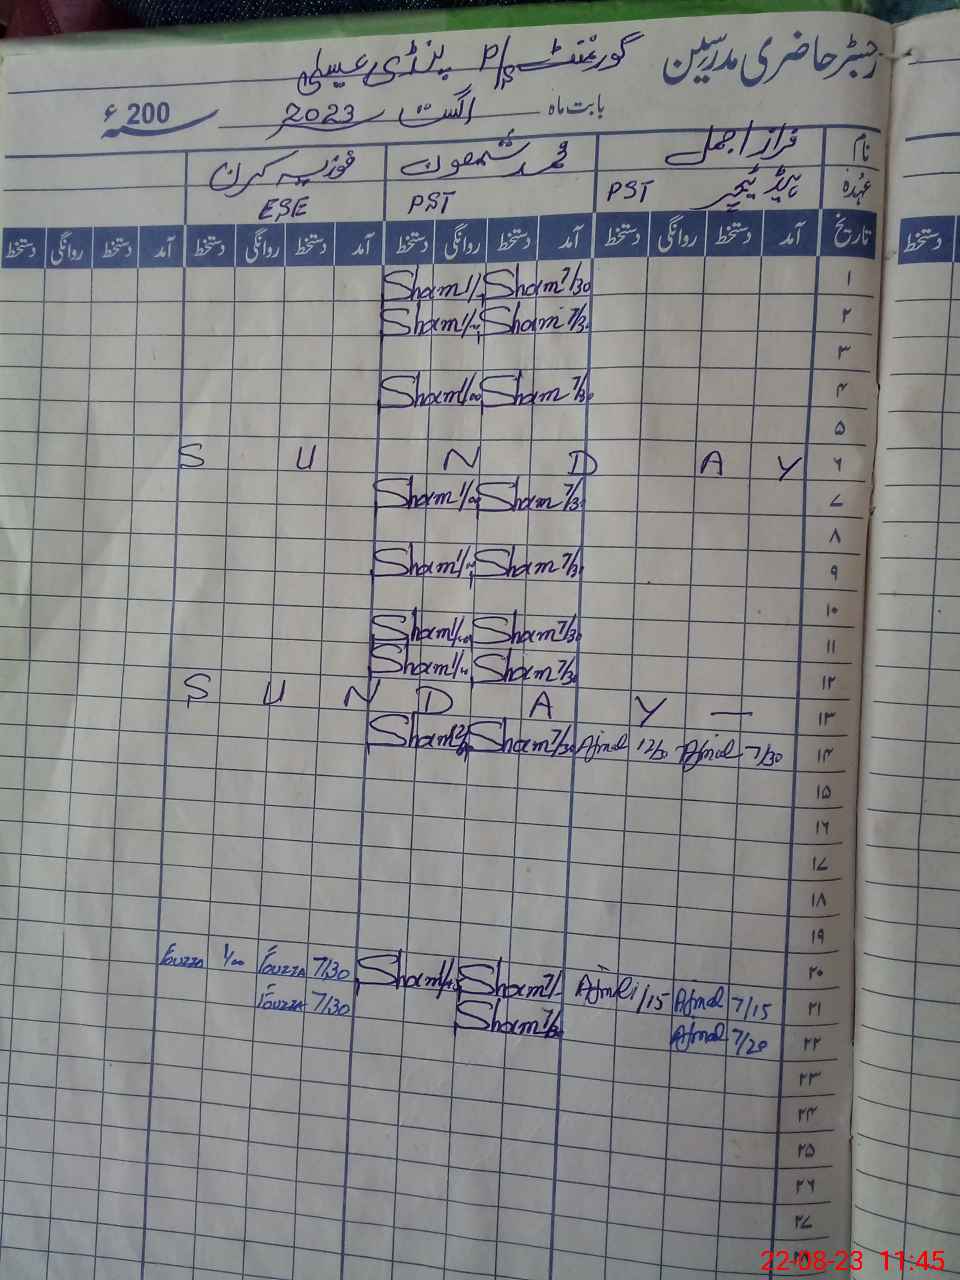 رجسٹر حاضری مدرسین گورنمنٹ P/S پنڈی عیسیٰ
بابت ماہ اگست 2023 سنہ 200ء
نام فراز اجمل محمد شمعون فوزیہ کرن
عہدہ ہیڈ ٹیچر PST PST ESE
تاریخ آمد دستخط روانگی دستخط آمد دستخط روانگی دستخط آمد دستخط روانگی دستخط آمد دستخط روانگی دستخط
دستخط
۱ 7/30 Sham 1/- Sham
۲ 7/30 Sham 1/- Sham
۳
۴ 7/30 Sham 1/00 Sham
۵
۶ SUNDAY
۷ 7/30 Sham 1/00 Sham
۸
۹ 7/30 Sham 1/- Sham
۱۰
۱۱ 7/30 Sham 1/00 Sham
۱۲ 7/30 Sham 1/- Sham
۱۳ SUNDAY —
۱۴ 7/30 Ajmal 12/30 Ajmal 7/30 Sham Sham
۱۵
۱۶
۱۷
۱۸
۱۹
۲۰
۲۱ 7/15 Ajmal 1/15 Ajmal 7/- Sham 1/15 Sham 7/30 Fouzia 1/00 Fouzia
۲۲ 7/20 Ajmal 7/30 Sham 7/30 Fouzia
۲۳
۲۴
۲۵
۲۶
۲۷
۲۸
22-08-23 11:45